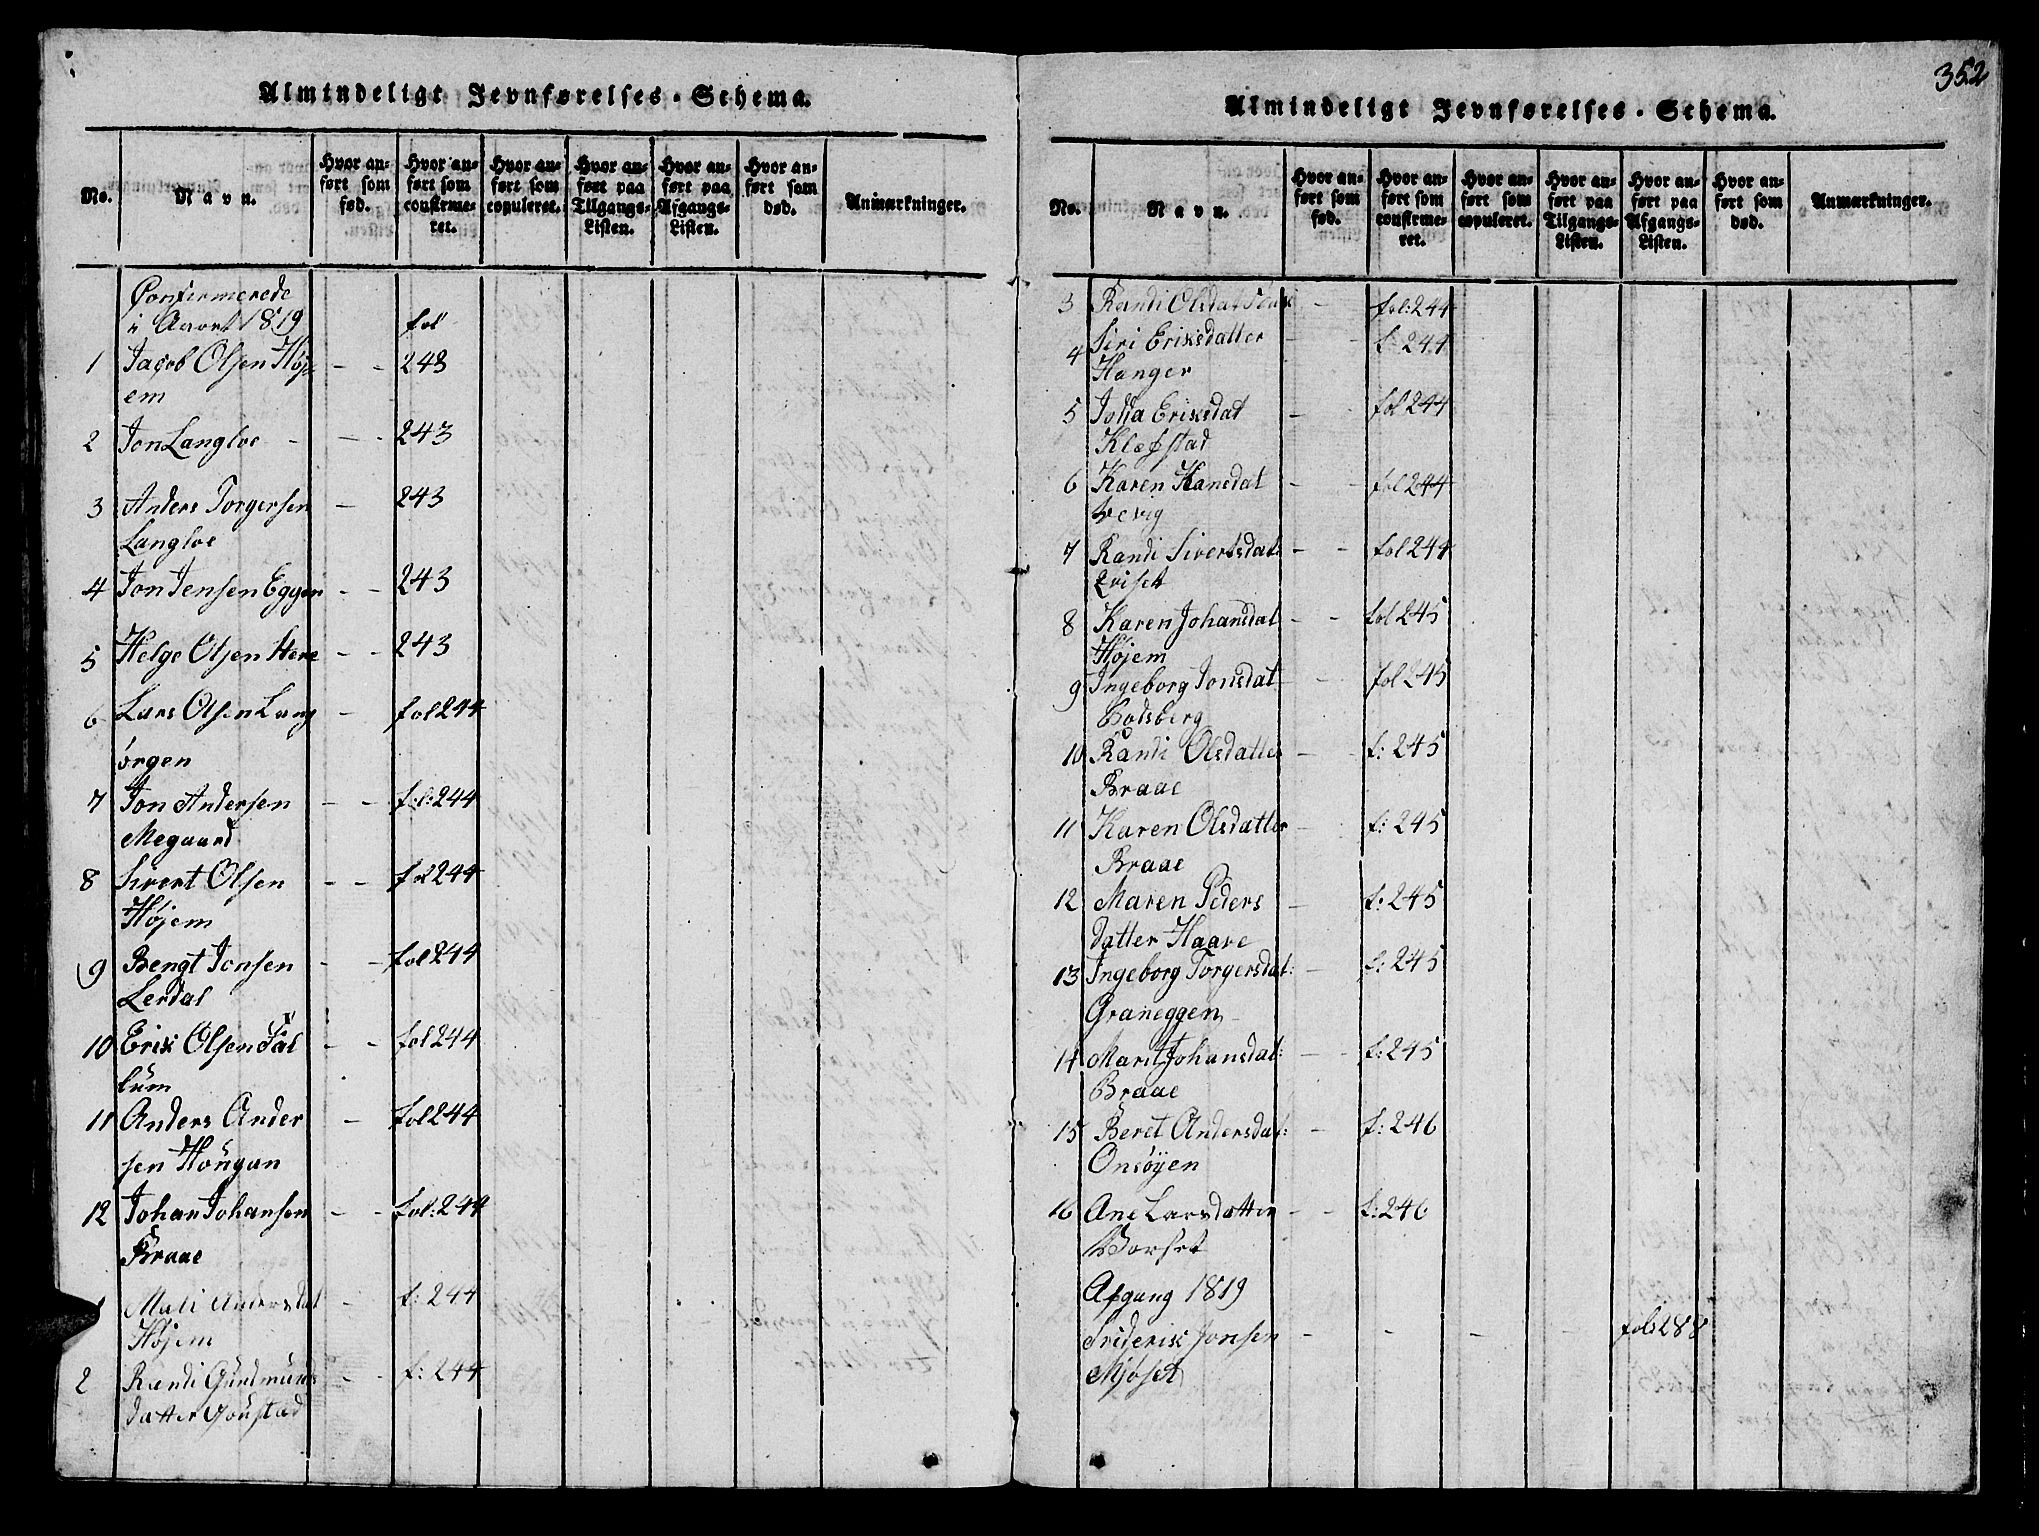 Almindeligt Jevnførelses-Schema.
No.
Navn.
Hvor anført som fød.
Hvor anført som confirmeret.
Hvor anført som copuleret.
Hvor anført paa Tilgangs-Listen.
Hvor anført paa Afgangs-Listen.
Hvor anført som død.
Anmærkninger.
Confirmerede
i Aaret 1819 fol
1 Jacob Olsen Høj - - 243
em
2 Jon Langloe - - - 243
3 Anders Torgersen - 243
Langloe
4 Jon Jensen Eggen - - 243
5 Helge Olsen Here - - 243
6 Lars Olsen Lang - fol 244
örgen
7 Jon Andersen - - fol: 244
Megaard
8 Sivert Olsen - - fol 244
Højem
9 Bengt Jonsen - - fol 244
Lerdal
10 Erik Olsen Sal - - fol 244
lum
11 Anders Ander - fol 244
sen Höugan
12 Johan Johansen - - fol: 244
Braae
1 Mali Andersdat - f: 244
Højem
2 Randi Gundmunds - - f: 244
datter Goustad
352
Almindeligt Jevnførelses-Schema.
No.
Navn.
Hvor anført som fød.
Hvor anført som confirmeret.
Hvor anført som copuleret.
Hvor anført paa Tilgangs-Listen.
Hvor anført paa Afgangs-Listen.
Hvor anført som død.
Anmærkninger.
3 Randi Olsdat - fol: 244
4 Siri Eriksdatter - - f: 244
Hanger
5 Eriksdat - - fol 244
Klefstad
6 Karen Hansdat - - fol 244
Vevig
7 Randi Sivertsdat - - fol 244
Qviset
8 Karen Johansdat - - fol 245
Højem
9 Ingeborg Jonsdat - - fol 245
Bodsberg
10 Randi Olsdatter - - f: 245
Braae
11 Karen Olsdatter - - f: 245
Braae
12 Maren Peders - - f: 245
datter Haave
13 Ingeborg Torgersdat: - f: 245
Graneggen
14 Marit Johansdat: - - f: 245
Braae
15 Beret Andersdat: - f: 246
Onsöyen
16 Ane Larsdatter - - f: 246
Borset
Afgang 1819
Friderik Jonsen - - - - fol: 288
Mjøset